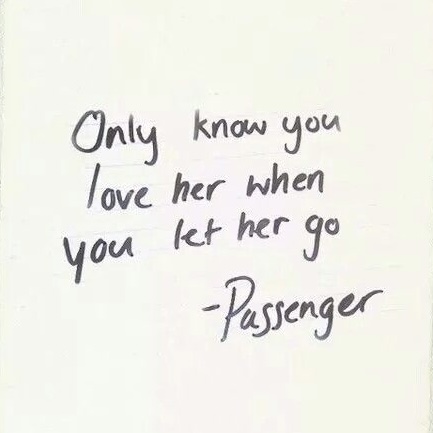 Only know you
love her when
you let her go
-Passenger